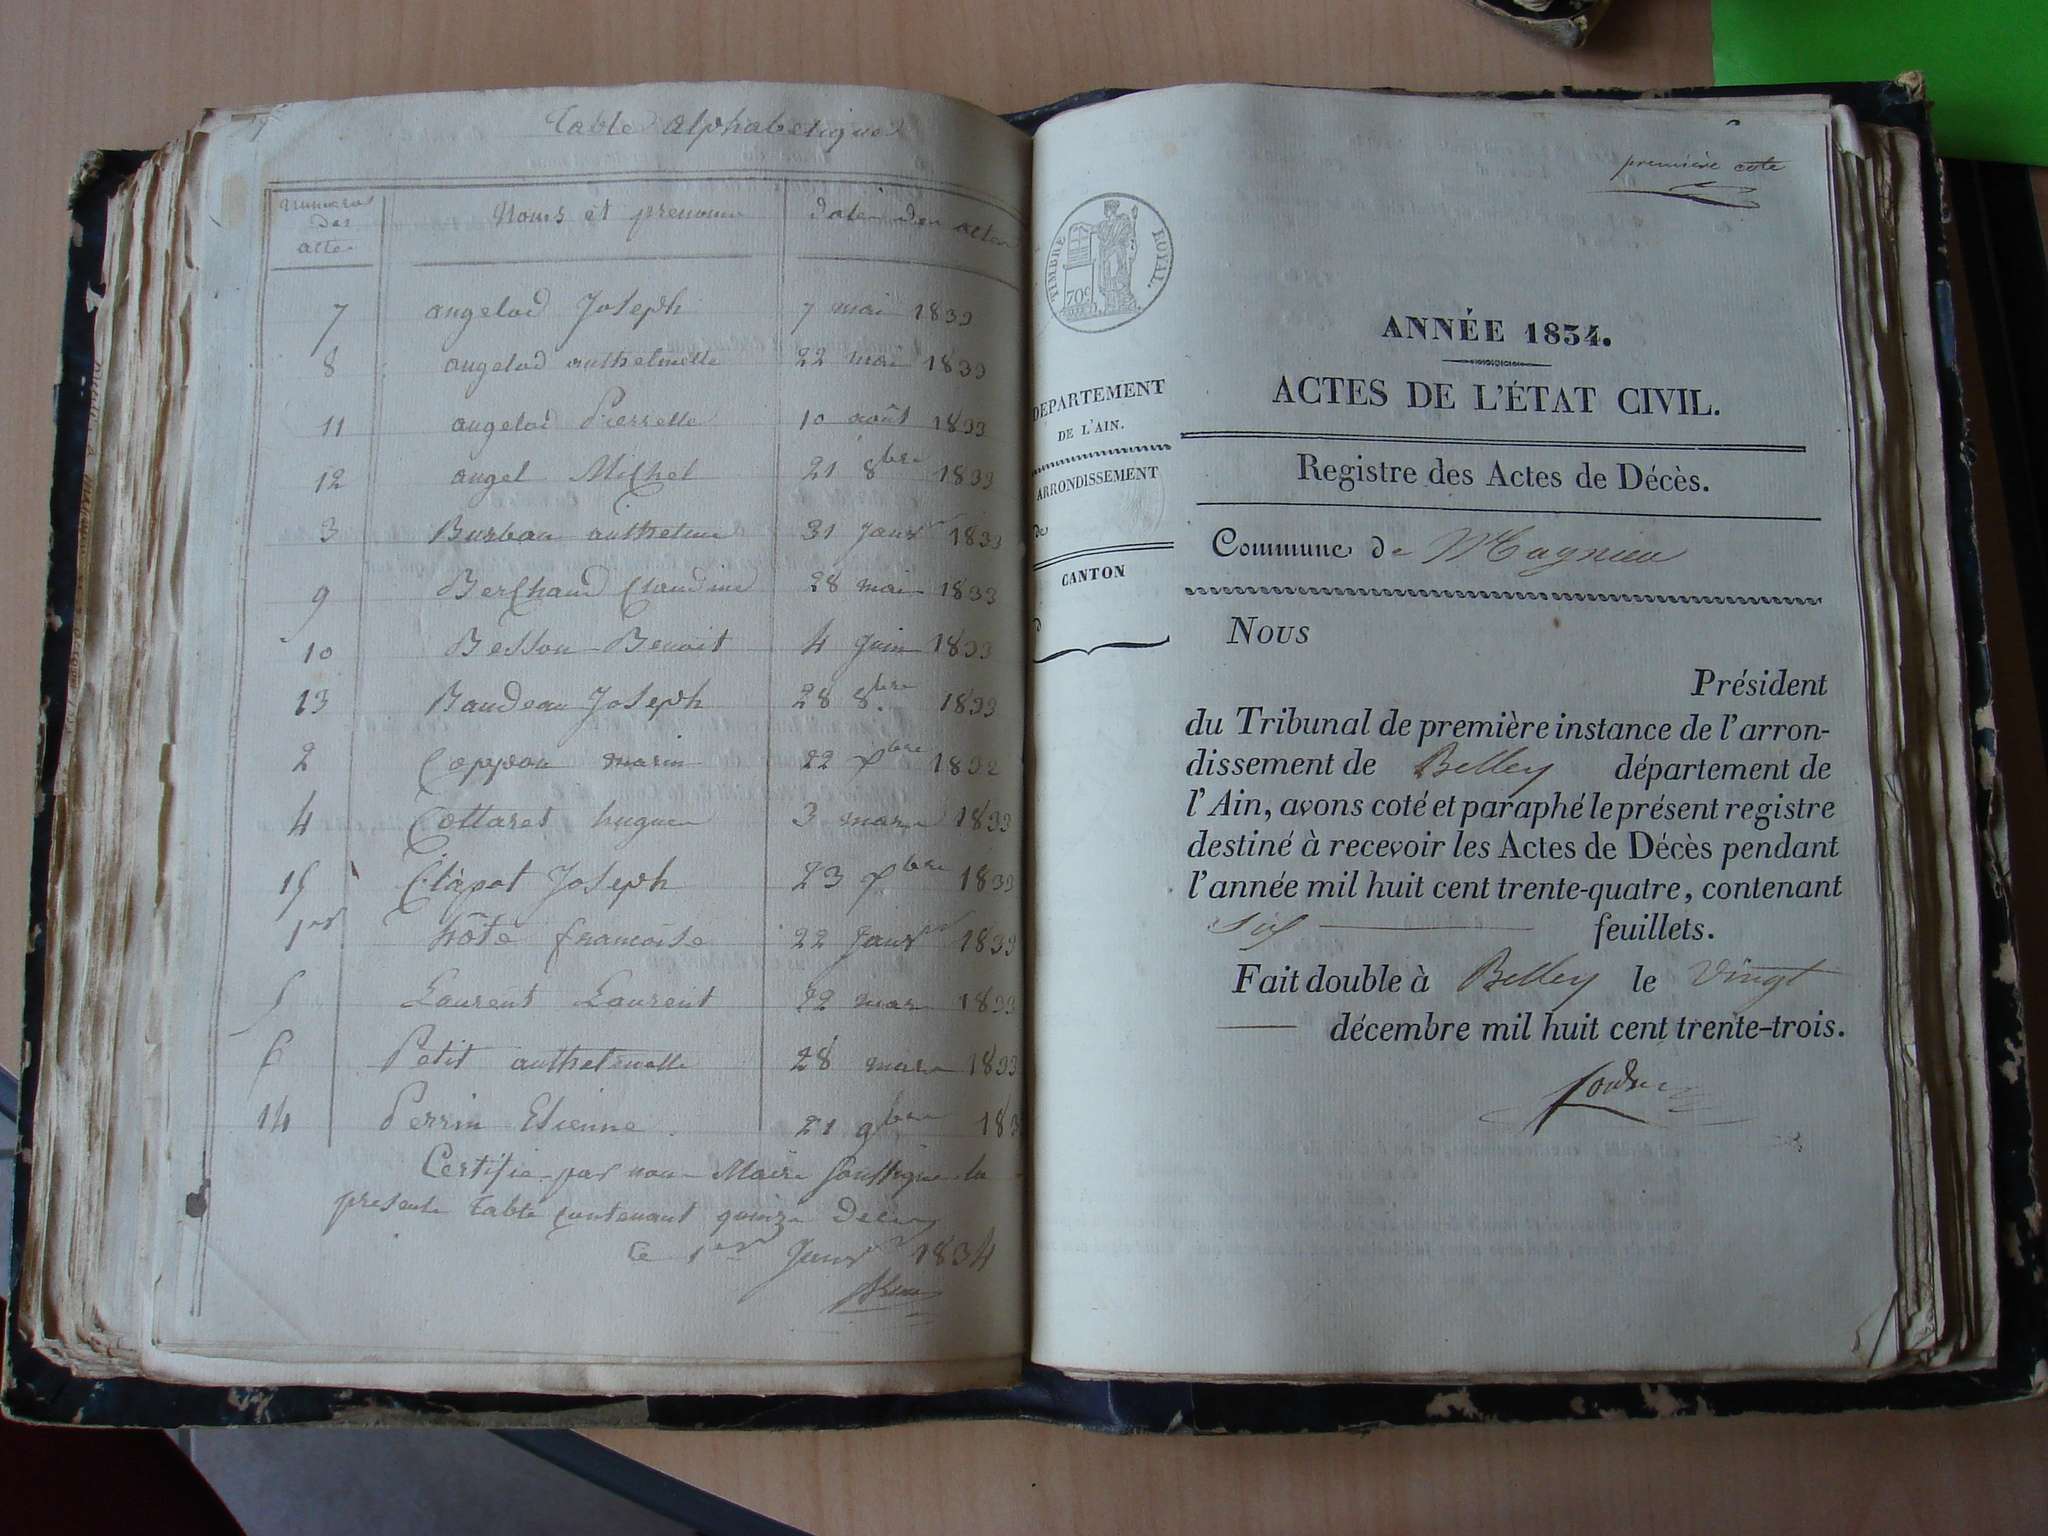 Table alphabetique
Numeros des actes
Noms et prenoms
dates des actes
7 angelod Joseph 7 mai 1833
8 angelod anthelmette 22 mai 1833
11 angelod Pierrette 10 août 1833
12 angel Michel 21 8bre 1833
3 Burban anthelme 31 Janvr 1833
9 Berthand Claudine 28 mai 1833
10 Besson Benoit 4 Juin 1833
13 Baudeau Joseph 28 8bre 1833
2 Coppon marin 22 Xbre 1832
4 Cottaret hugues 3 mars 1833
15 Clapot Joseph 23 Xbre 1833
1er hôte francoise 22 Janvr 1833
5 Laurent Laurent 22 mars 1833
6 Petit anthelmette 28 mars 1833
14 Perrin Etienne 21 9bre 183
Certifie par nous Maire Soussigné la
presente Table contenant quinze Deces
le 1er Janvr 1834
première cote
TIMBRE ROYAL.
70c
ANNÉE 1834.
ACTES DE L'ÉTAT CIVIL.
DÉPARTEMENT
DE L'AIN.
ARRONDISSEMENT
de
CANTON
d
Registre des Actes de Décès.
Commune de Magnieu
Nous
Président
du Tribunal de première instance de l'arron-
dissement de Belley département de
l'Ain, avons coté et paraphé le présent registre
destiné à recevoir les Actes de Décès pendant
l'année mil huit cent trente-quatre, contenant
Six feuillets.
Fait double à Belley le Vingt
décembre mil huit cent trente-trois.